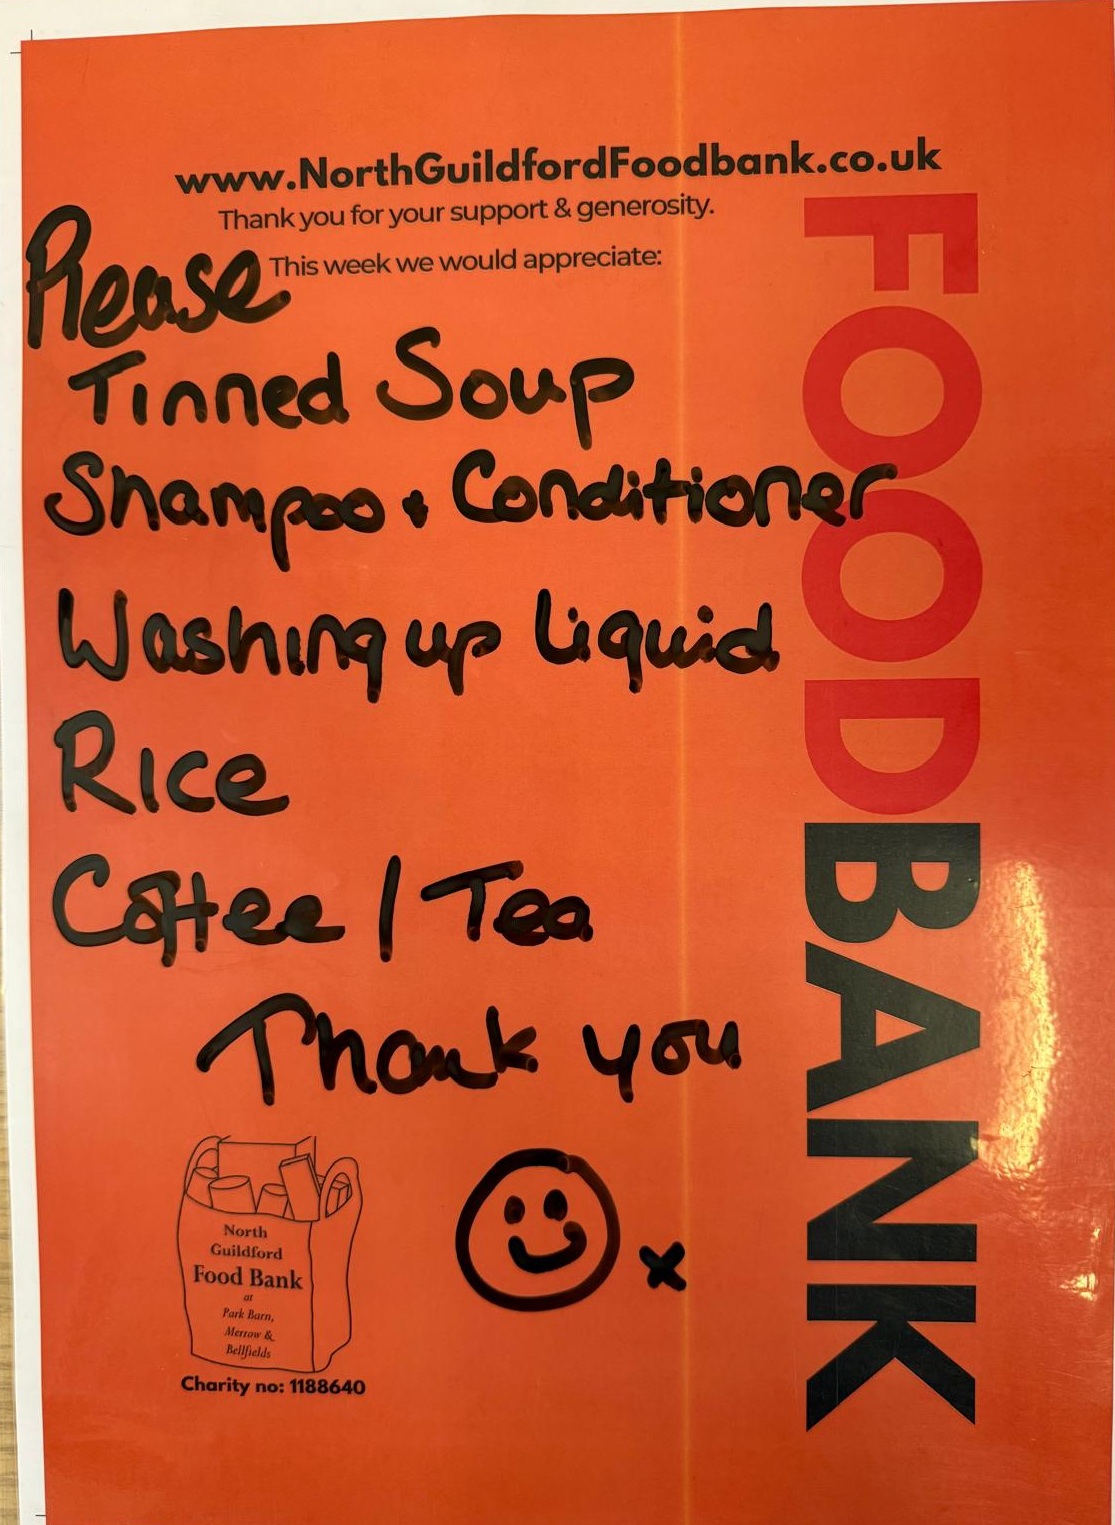 www.NorthGuildfordFoodbank.co.uk
Thank you for your support & generosity.
This week we would appreciate:
Please
Tinned Soup
Shampoo + Conditioner
Washing up Liquid
Rice
Coffee / Tea
Thank you
x
North
Guildford
Food Bank
at
Park Barn,
Merrow &
Bellfields
Charity no: 1188640
FOODBANK